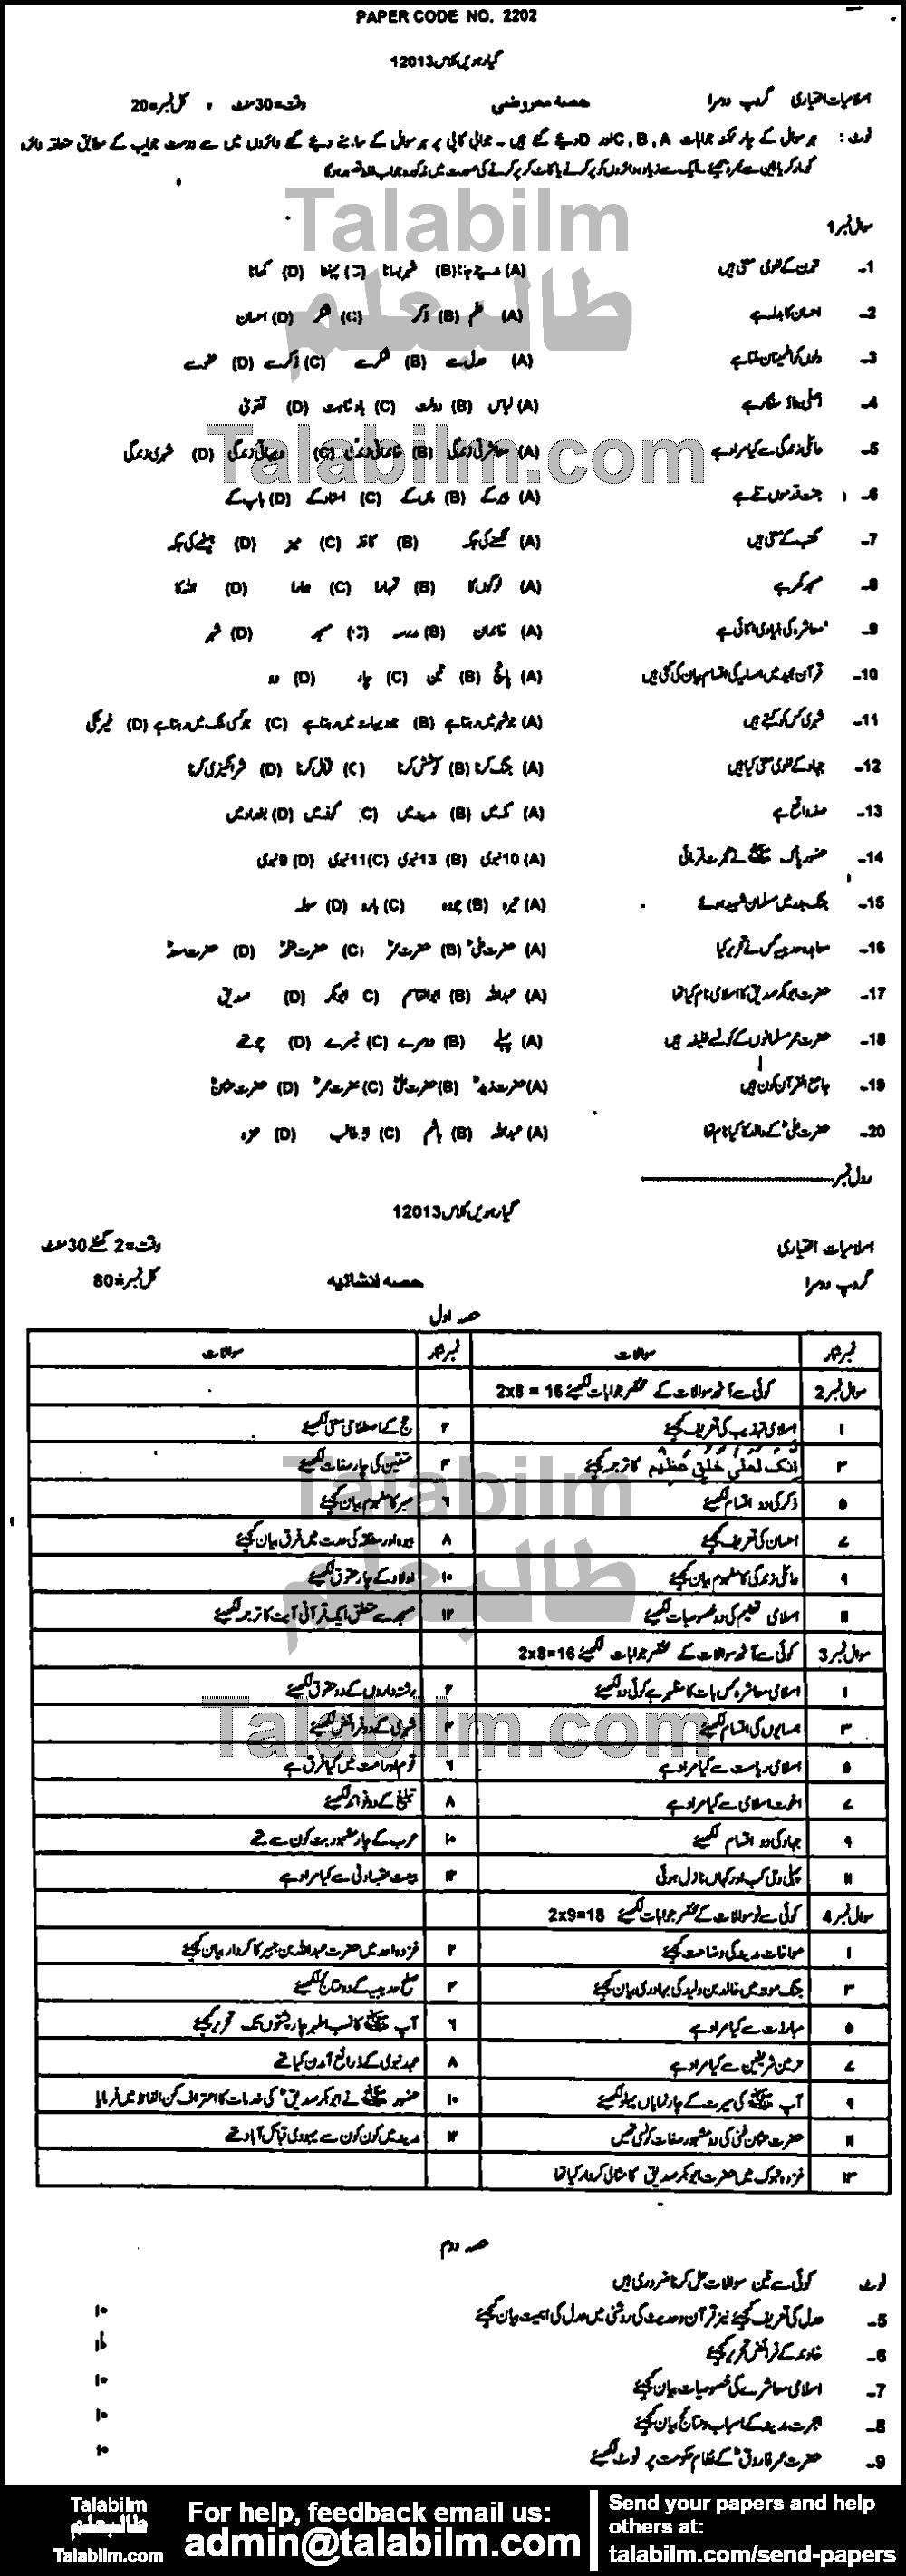 PAPER CODE NO. 2202
گیارہویں کلاس 12013
اسلامیات اختیاری گروپ دوسرا حصہ معروضی وقت=30 منٹ کل نمبر=20
نوٹ: ہر سوال کے چار ممکنہ جوابات C, B, A اور D دیئے گئے ہیں۔ جوابی کاپی پر ہر سوال کے سامنے دیئے گئے دائروں میں سے درست جواب کے مطابق متعلقہ دائرہ
کو مارکر یا پین سے بھر دیجئے۔ ایک سے زیادہ دائروں کو پر کرنے یا کاٹ کر پر کرنے کی صورت میں مذکورہ جواب غلط تصور ہوگا
Talabilm
طالبعلم
سوال نمبر 1
1- تمدن کے لغوی معنی ہیں (A) (B) شہر بسانا (C) پہننا (D) کھانا
2- احسان کا بدلہ ہے (A) علم (B) ذکر (C) شکر (D) احسان
3- دلوں کو اطمینان ملتا ہے (A) عدل سے (B) شکر سے (C) ذکر سے (D) عفو سے
4- اصلی بناؤ سنگار ہے (A) لباس (B) دولت (C) بادشاہت (D) تقویٰ
Talabilm.com
5- عائلی زندگی سے کیا مراد ہے (A) معاشرتی زندگی (B) خاندانی زندگی (C) دیہاتی زندگی (D) شہری زندگی
6- جنت قدموں تلے ہے (A) (B) ماں کے (C) استاد کے (D) باپ کے
7- مکتب کے معنی ہیں (A) لکھنے کی جگہ (B) کاغذ (C) میز (D) بیٹھنے کی جگہ
8- مسجد گھر ہے (A) لوگوں کا (B) تمہارا (C) ہمارا (D) اللہ کا
9- معاشرہ کی بنیادی اکائی ہے (A) خاندان (B) مدرسہ (C) مسجد (D) شہر
10- قرآن مجید میں ہمسایہ کی اقسام بیان کی گئی ہیں (A) پانچ (B) تین (C) چار (D) دو
11- شہری کس کو کہتے ہیں (A) جو شہر میں رہتا ہے (B) جو دیہات میں رہتا ہے (C) جو کسی ملک میں رہتا ہے (D) غیر ملکی
12- جہاد کے لغوی معنی کیا ہیں (A) جنگ کرنا (B) کوشش کرنا (C) قتال کرنا (D) شر انگیزی کرنا
13- صفہ واقع ہے (A) مکہ میں (B) مدینہ میں (C) کوفہ میں (D) بغداد میں
14- حضور پاک ﷺ نے ہجرت فرمائی (A) 10 نبوی (B) 13 نبوی (C) 11 نبوی (D) 9 نبوی
15- جنگ بدر میں مسلمان شہید ہوئے (A) تیرہ (B) چودہ (C) بارہ (D) سولہ
16- معاہدہ حدیبیہ کس نے تحریر کیا (A) حضرت علیؓ (B) حضرت عمرؓ (C) حضرت طلحہؓ (D) حضرت سعدؓ
17- حضرت ابوبکر صدیق کا اسلامی نام کیا تھا (A) عبداللہ (B) ابوالقاسم (C) ابوبکر (D) صدیق
18- حضرت عمر مسلمانوں کے کونسے خلیفہ ہیں (A) پہلے (B) دوسرے (C) تیسرے (D) چوتھے
19- جامع القرآن کون ہیں (A) حضرت زیدؓ (B) حضرت علیؓ (C) حضرت عمرؓ (D) حضرت عثمانؓ
20- حضرت علیؓ کے والد کا کیا نام تھا (A) عبداللہ (B) ہاشم (C) ابوطالب (D) حمزہ
رول نمبر
گیارہویں کلاس 12013
اسلامیات اختیاری وقت=2 گھنٹے 30 منٹ
گروپ دوسرا حصہ انشائیہ کل نمبر=80
حصہ اول
نمبر شمار سوالات نمبر شمار سوالات
سوال نمبر 2 کوئی سے آٹھ سوالات کے مختصر جوابات لکھیئے 16 = 2x8
۱ اسلامی تہذیب کی تعریف کیجئے ۲ حج کے اصطلاحی معنی لکھیئے
۳ اِنَّکَ لَعَلٰی خُلُقٍ عَظِیْمٍ کا ترجمہ کیجئے ۴ متقین کی چار صفات لکھیئے
Talabilm
۵ ذکر کی دو اقسام لکھیئے ۶ صبر کا مفہوم بیان کیجئے
۷ احسان کی تعریف کیجئے ۸ بیوہ اور مطلقہ کی عدت میں فرق بیان کیجئے
طالبعلم
۹ عائلی زندگی کا مفہوم بیان کیجئے ۱۰ اولاد کے چار حقوق لکھیئے
۱۱ اسلامی تعلیم کی دو خصوصیات لکھیئے ۱۲ مسجد سے متعلق ایک قرآنی آیت کا ترجمہ لکھیئے
سوال نمبر 3 کوئی سے آٹھ سوالات کے مختصر جوابات لکھیئے 2x8=16
۱ اسلامی معاشرہ کس بات کا مظہر ہے کوئی دو لکھیئے ۲ رشتہ داروں کے دو حقوق لکھیئے
Talabilm.com
۳ ہمسایوں کی اقسام لکھیئے ۴ شہری کے دو فرائض لکھیئے
۵ اسلامی ریاست سے کیا مراد ہے ۶ قوم اور امت میں کیا فرق ہے
۷ اخوت اسلامی سے کیا مراد ہے ۸ تبلیغ کے دو فوائد لکھیئے
۹ جہاد کی دو اقسام لکھیئے ۱۰ عرب کے چار مشہور بت کون سے تھے
۱۱ پہلی وحی کب اور کہاں نازل ہوئی ۱۲ بیعت عقبہ اولیٰ سے کیا مراد ہے
سوال نمبر 4 کوئی سے نو سوالات کے مختصر جوابات لکھیئے 2x9=18
۱ مواخات مدینہ کی وضاحت کیجئے ۲ غزوہ احد میں حضرت عبداللہ بن جبیر کا کردار بیان کیجئے
۳ جنگ موتہ میں خالد بن ولید کی بہادری بیان کیجئے ۴ صلح حدیبیہ کے دو نتائج لکھیئے
۵ مبارزت سے کیا مراد ہے ۶ آپ ﷺ کا نسب اطہر چار پشتوں تک تحریر کیجئے
۷ حرمین شریفین سے کیا مراد ہے ۸ عہد نبوی کے ذرائع آمدن کیا تھے
۹ آپ ﷺ کی سیرت کے چار نمایاں پہلو لکھیئے ۱۰ حضور ﷺ نے ابوبکر صدیقؓ کی خدمات کا اعتراف کن الفاظ میں فرمایا
۱۱ حضرت عثمان غنی کی دو مشہور صفات کونسی تھیں ۱۲ مدینہ میں کون کون سے یہودی قبائل آباد تھے
۱۳ غزوہ تبوک میں حضرت ابوبکر صدیقؓ کا مثالی کردار کیا تھا
حصہ دوم
نوٹ کوئی سے تین سوالات حل کرنا ضروری ہیں
5- عدل کی تعریف کیجئے نیز قرآن و حدیث کی روشنی میں عدل کی اہمیت بیان کیجئے ۱۰
6- خاوند کے فرائض تحریر کیجئے ۱۰
7- اسلامی معاشرے کی خصوصیات بیان کیجئے ۱۰
8- ہجرت مدینہ کے اسباب و نتائج بیان کیجئے ۱۰
9- حضرت عمر فاروقؓ کے نظام حکومت پر نوٹ لکھیئے ۱۰
Talabilm
طالبعلم
Talabilm.com
For help, feedback email us:
admin@talabilm.com
Send your papers and help
others at:
talabilm.com/send-papers